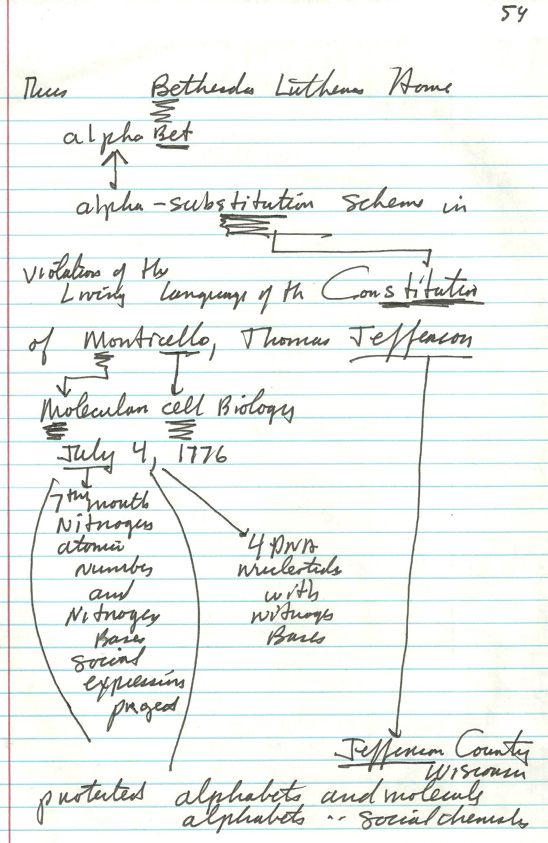 54
Thus Bethesda Lutheran Home
alpha Bet
alpha-substitution scheme in
violation of the
Living language of the Constitution
of Monticello, Thomas Jefferson
Molecular cell Biology
July 4, 1776
7th month
Nitrogen
atomic
number
and
Nitrogen
Bases
social
expression
project
4 DNA
nucleotids
with
nitrogen
Bases
Jefferson County
Wisconsin
protected alphabets and molecule
alphabets -- social chemists